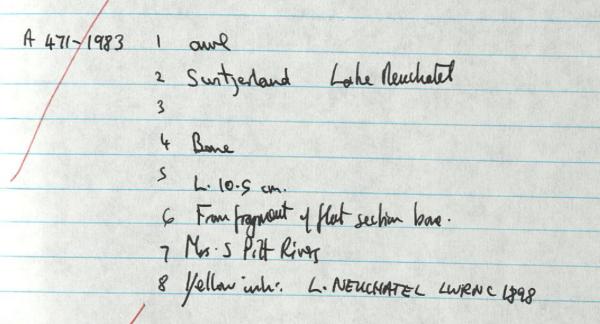 A 471-1983 1 awl
2 Switzerland Lake Neuchatel
3
4 Bone
5 L. 10.5 cm.
6 From fragment of flat section bone.
7 Mrs. S Pitt Rivers
8 Yellow ink: L. NEUCHATEL LWRNC 1898